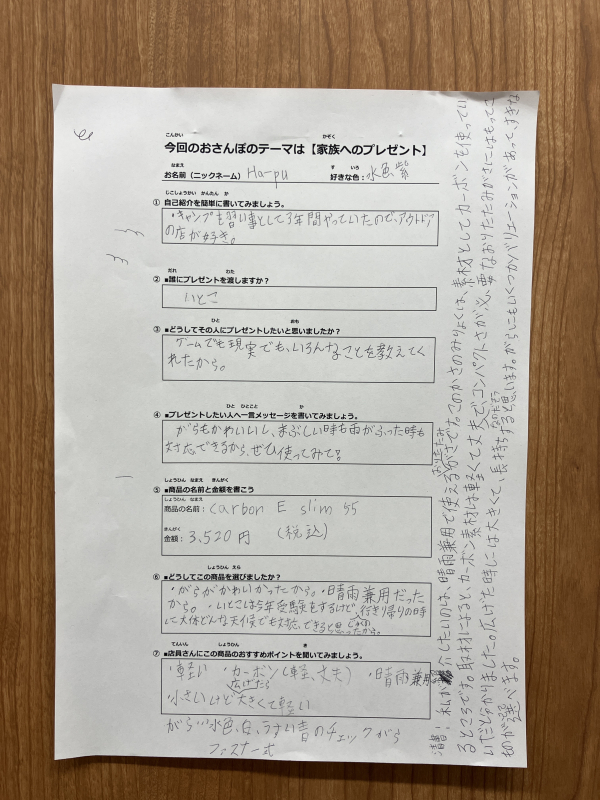 こんかい かぞく
今回のおさんぽのテーマは【家族へのプレゼント】
なまえ す いろ
お名前（ニックネーム） Ha-pu 好きな色：水色紫
じこしょうかい かんたん か
① 自己紹介を簡単に書いてみましょう。
・キャンプを習い事として3年間やっていたので、アウトドア
の店が好き。
だれ わた
② ■誰にプレゼントを渡しますか？
いとこ
ひと おも
③ ■どうしてその人にプレゼントしたいと思いましたか？
ゲームでも現実でも、いろんなことを教えてく
れたから。
ひと ひとこと か
④ ■プレゼントしたい人へ一言メッセージを書いてみましょう。
がらもかわいいし、まぶしい時も雨がふった時も
対応できるから、ぜひ使ってみて!
しょうひん なまえ きんがく
⑤ ■商品の名前と金額を書こう
しょうひん なまえ
商品の名前：carbon E slim 55
きんがく
金額：3,520円 （税込）
しょうひん えら
⑥ ■どうしてこの商品を選びましたか？
・がらがかわいかったから。・晴雨兼用だった
から。・いとこは今年受験をするけど、行き帰りの時
に大体どんな天候でも対応できると思ったから。
てんいん しょうひん き
⑦ ■店員さんにこの商品のおすすめポイントを聞いてみましょう。
・軽い ・カーボン（軽、丈夫） ・晴雨兼用
広げたら
小さいけど大きくて軽い
がら…水色、白、うすい青のチェックがら
ファスナー式
清書! 私が
介したいのは、晴雨兼用で使える
おりたたみ
かさです。このかさのみりょくは、素材としてカーボンを使ってい
るところです。取材によると、カーボン素材は軽くて丈夫で、コンパクトさが必要なおりたたみがさにはもってこ
いだと分かりました。広げた時には大きくて、
長持ちすると思います。がらにもいくつかバリエーションがあって、すきな
ものが選べます。